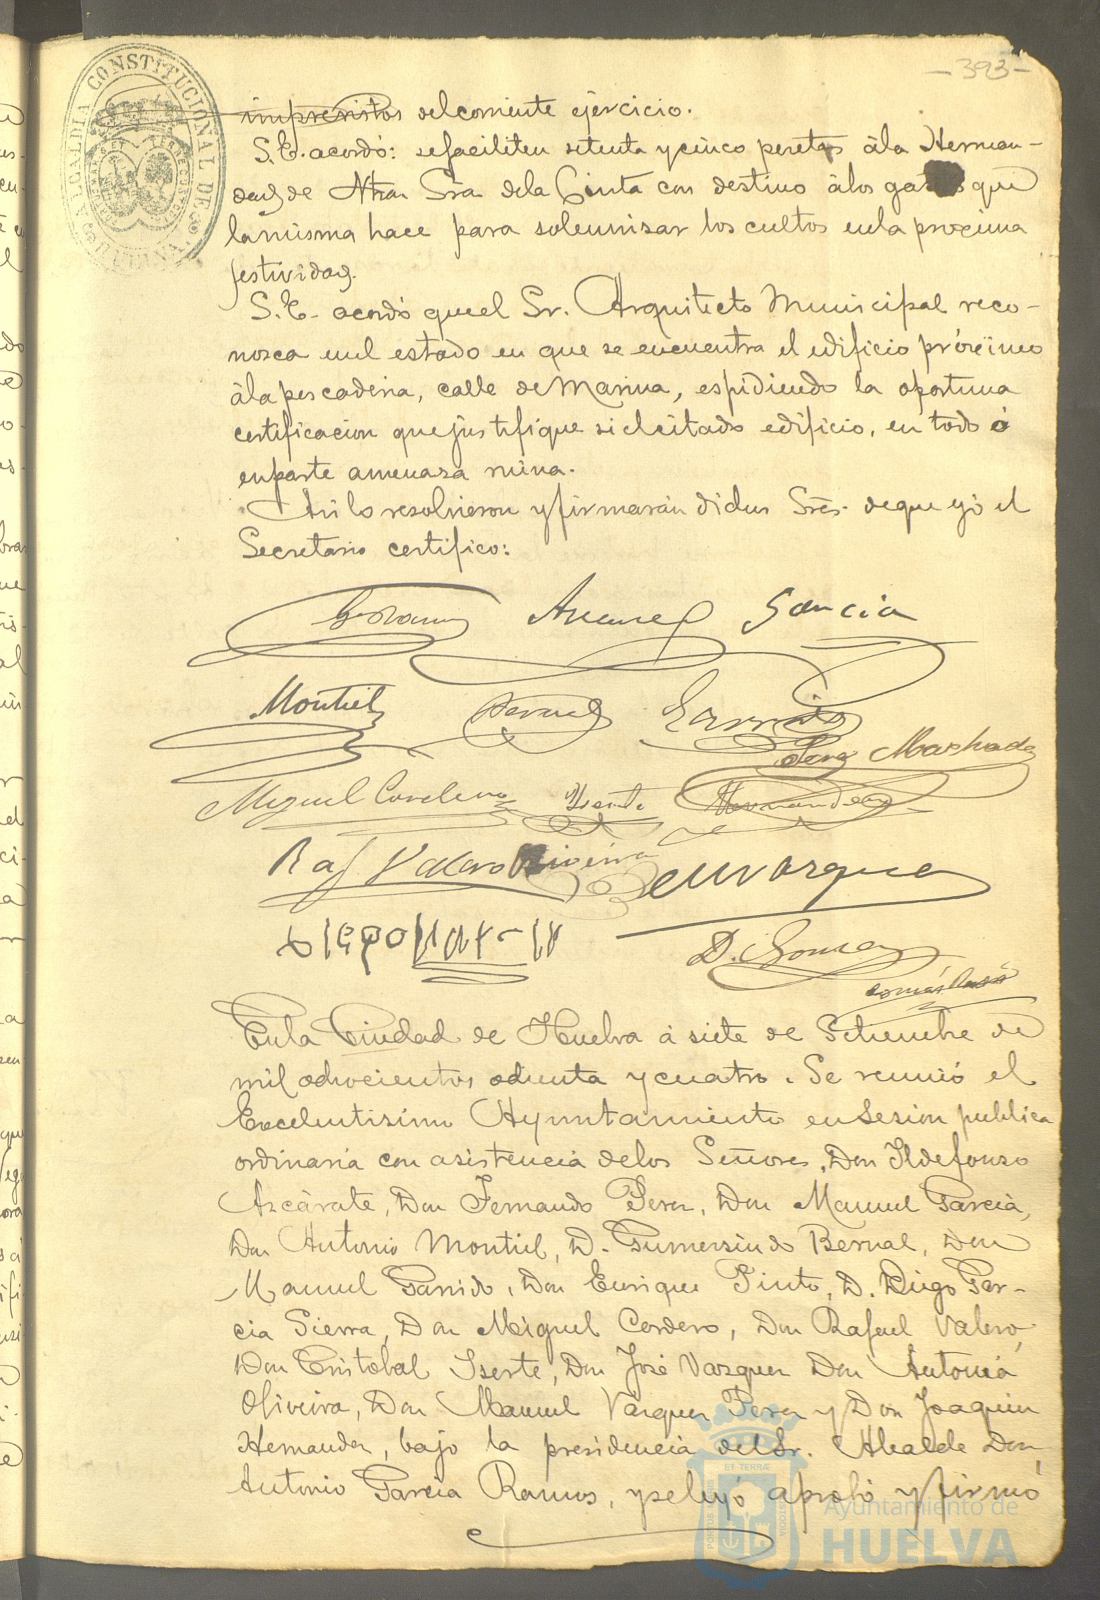 -393-
ALCALDIA CONSTITUCIONAL DE HUELVA
imprevistos del corriente ejercicio.
S. E. acordó: se faciliten setenta y cinco pesetas á la Herman-
dad de Ntra Sra de la Cinta con destino á los gastos que
la misma hace para solemnisar los cultos en la procsima
festividad.
S. E. acordó que el Sr. Arquitecto Municipal reco-
nosca el estado en que se encuentra el edificio próximo
á la pescaderia, calle de Marina, espidiendo la oportuna
certificacion que justifique si el citado edificio, en todo ó
en parte amenasa ruina.
Asi lo resolvieron y firmarán dichos Sres. de que yó el
Secretario certifico:
Garcia
Montiel Bernal Garrido
Perez Machado
Miguel Cordero Iserte Hernandez
Raf Valero Oliveira M Vazquez
Diego
D.
En la Ciudad de Huelva á siete de Setiembre de
mil ochocientos ochenta y cuatro. Se reunió el
Excelentisimo Ayuntamiento en sesion publica
ordinaria con asistencia de los Señores, Don Ildefonso
Azcárate, Don Fernando Perez, Don Manuel Garcia,
Don Antonio Montiel, D. Gumersindo Bernal, Don
Manuel Garrido, Don Enrique Pinto, D. Diego Gar-
cia Sierra, Don Miguel Cordero, Don Rafael Valero,
Don Cristobal Iserte, Don José Vazquez Don Antonio
Oliveira, Don Manuel Vazquez Perez y Don Joaquin
Hernandez, bajo la presidencia del Sr. Alcalde Don
Antonio Garcia Ramos, y se leyó aprobó y firmó
Ayuntamiento de
HUELVA